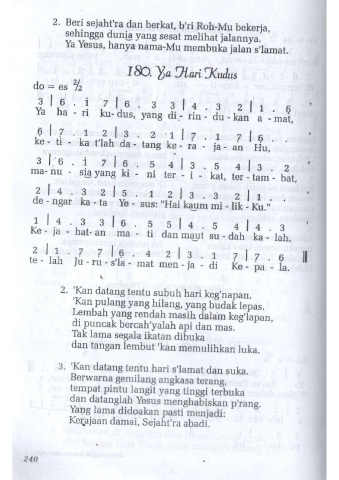 2. Beri sejaht'ra dan berkat, b'ri Roh-Mu bekerja,
sehingga dunia yang sesat melihat jalannya.
Ya Yesus, hanya nama-Mu membuka jalan s'lamat.
180. Ya Hari Kudus
do = es 2/2
3 | 6 . i 7 | 6 . 3 3 | 4 . 3 2 | 1 . 6
Ya ha - ri ku-dus, yang di - rin - du - kan a - mat,
6 | 7 . 1 2 | 3 . 2 1 | 7 . 1 7 | 6 . .
ke - ti - ka t'lah da - tang ke - ra - ja - an Hu,
3 | 6 . i 7 | 6 . 5 4 | 3 . 5 4 | 3 . 2
ma - nu - sia yang ki - ni ter - i - kat, ter - tam - bat,
2 | 4 . 3 2 | 5 . 1 2 | 3 . 3 2 | 1 . .
de - ngar ka - ta Ye - sus: "Hai kaum mi - lik - Ku."
1 | 4 . 3 3 | 6 . 5 5 | 4 . 5 4 | 4 . 3
Ke - ja - hat-an ma - ti dan maut su - dah ka - lah,
2 | 1 . 7 7 | 6 . 4 2 | 3 . 1 7 | 7 . 6
te - lah Je - ru - s'la - mat men - ja - di Ke - pa - la.
2. 'Kan datang tentu subuh hari keg'napan.
'Kan pulang yang hilang, yang budak lepas.
Lembah yang rendah masih dalam keg'lapan,
di puncak bercah'yalah api dan mas.
Tak lama segala ikatan dibuka
dan tangan lembut 'kan memulihkan luka.
3. 'Kan datang tentu hari s'lamat dan suka.
Berwarna gemilang angkasa terang,
tempat pintu langit yang tinggi terbuka
dan datanglah Yesus menghabiskan p'rang.
Yang lama didoakan pasti menjadi:
Kerajaan damai, Sejaht'ra abadi.
240